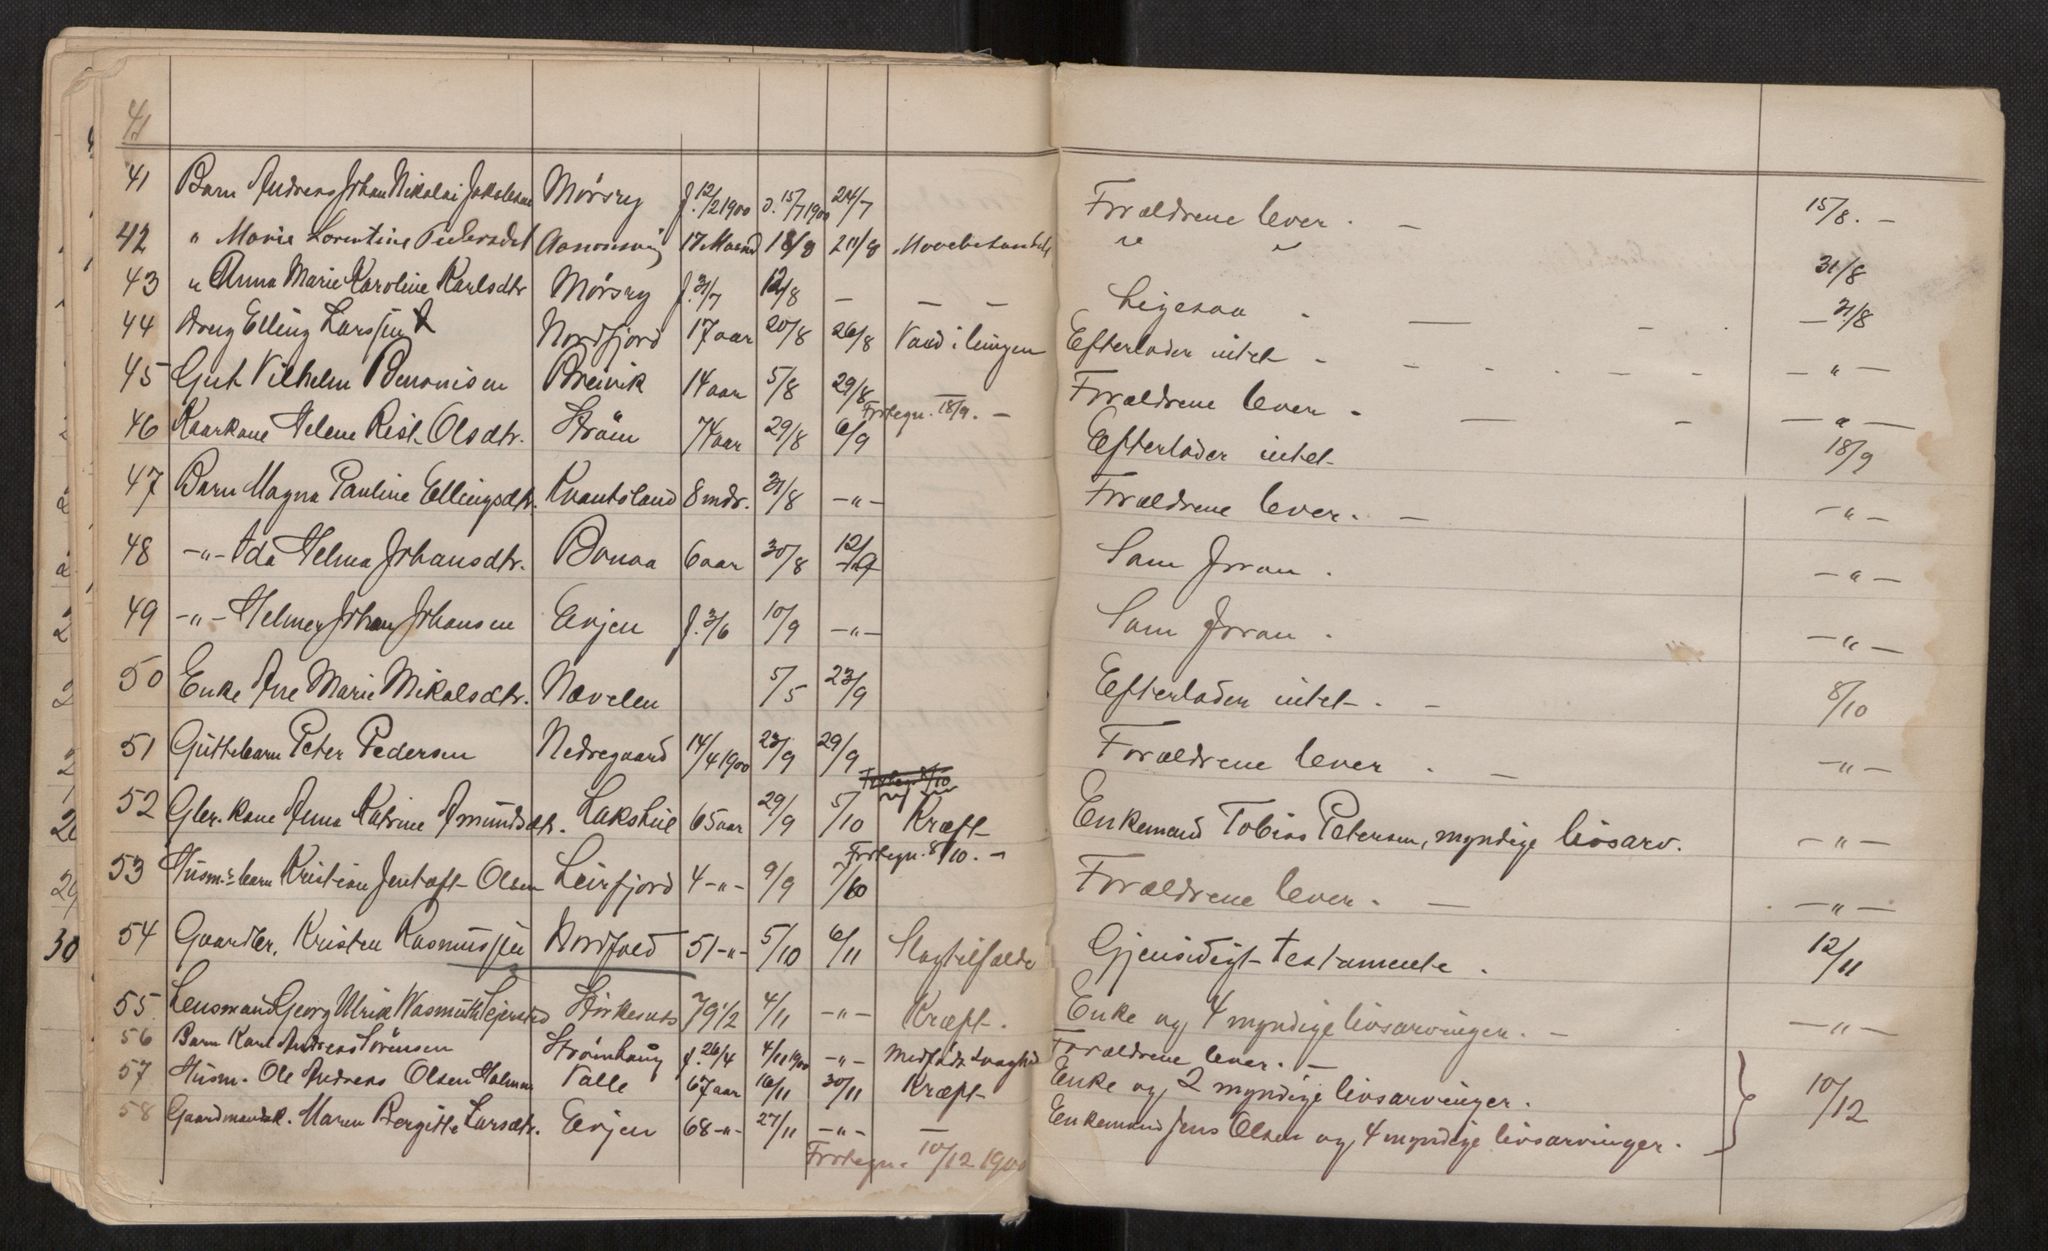 41
41 Barn Andreas Johan Nikolai Jakobsen Mørsry f. 12/2 1900 d. 15/7 1900 24/7 Forældrene lever. - 15/8. -
42 " Marie Lorentine Pedersdtr 17 Maaned 18/8 " "
43 " Anna Marie Karoline Karlsdtr Mørsry f. 31/7 12/8 - - - Ligesaa - 31/8
44 Dreng Elling Larssen Nordfjord 17 aar 20/8 26/8 Vand i lungen Efterlader intet - 31/8
45 Gut Vilhelm Benonisen Breivik 14 aar 5/8 29/8 Forældrene lever - - " -
Fortegn. 18/9. -
46 Kaarkone Helene Rist. Olsdtr. Strøm 74 aar 29/8 6/9 Efterlader intet - 18/9
47 Barn Magna Pauline Ellingsdtr. Kvantoland 8 mdr. 31/8 - " - Forældrene lever. - - " -
48 - " - Ida Helma Johansdtr. Bonaa 6 aar 30/8 12/9 Som foran. - " -
49 - " - Helmer Johan Johansen Evjen f. 3/6 10/9 - " - Som foran. - " -
50 Enke Ane Marie Mikalsdtr. Nævelen 5/5 23/9 Efterlader intet - . - 8/10
51 Guttebarn Peter Pedersen Nedregaard 14/4 1900 23/9 29/9 Forældrene lever . - - " -
Fortegn 8/10
52 Gbr. kone Anna Katrine Amundsdtr. Lakshul 65 aar 29/9 5/10 Kræft Enkemand Tobias Petersen, myndige livsarv. - " -
Fortegn. 8/10. -
53 Husm.s barn Kristian Jentoft Olsen Leirfjord 4 - " - 9/9 7/10 Forældrene lever. - - " -
54 Gaardbr. Kristen Rasmussen Nordfold 51 - " - 5/10 6/11 Slagtilfælde Gjensidigt testamente. 12/11
55 Lensmand Georg Ulrik Wasmuth Sejersted Storkesnes 79 1/2 4/11 - " - Kræft. Enke og 4 myndige livsarvinger. - - " -
56 Barn Karl Andreas Sørensen Strømhaug f. 26/4 4/11 1900 - " - Medfødt svaghed Forældrene lever. -
57 Husm. Ole Andreas Olsen Valle 67 aar 16/11 30/11 Kræft Enke og 2 myndige livsarvinger. 10/12
58 Gaardmandsk. Maren Bergitte Larsdtr. Evjen 68 - " - 27/11 - " - - Enkemand Jens Olsen og 4 myndige livsarvinger.
Fortegn. 10/12 1900
30